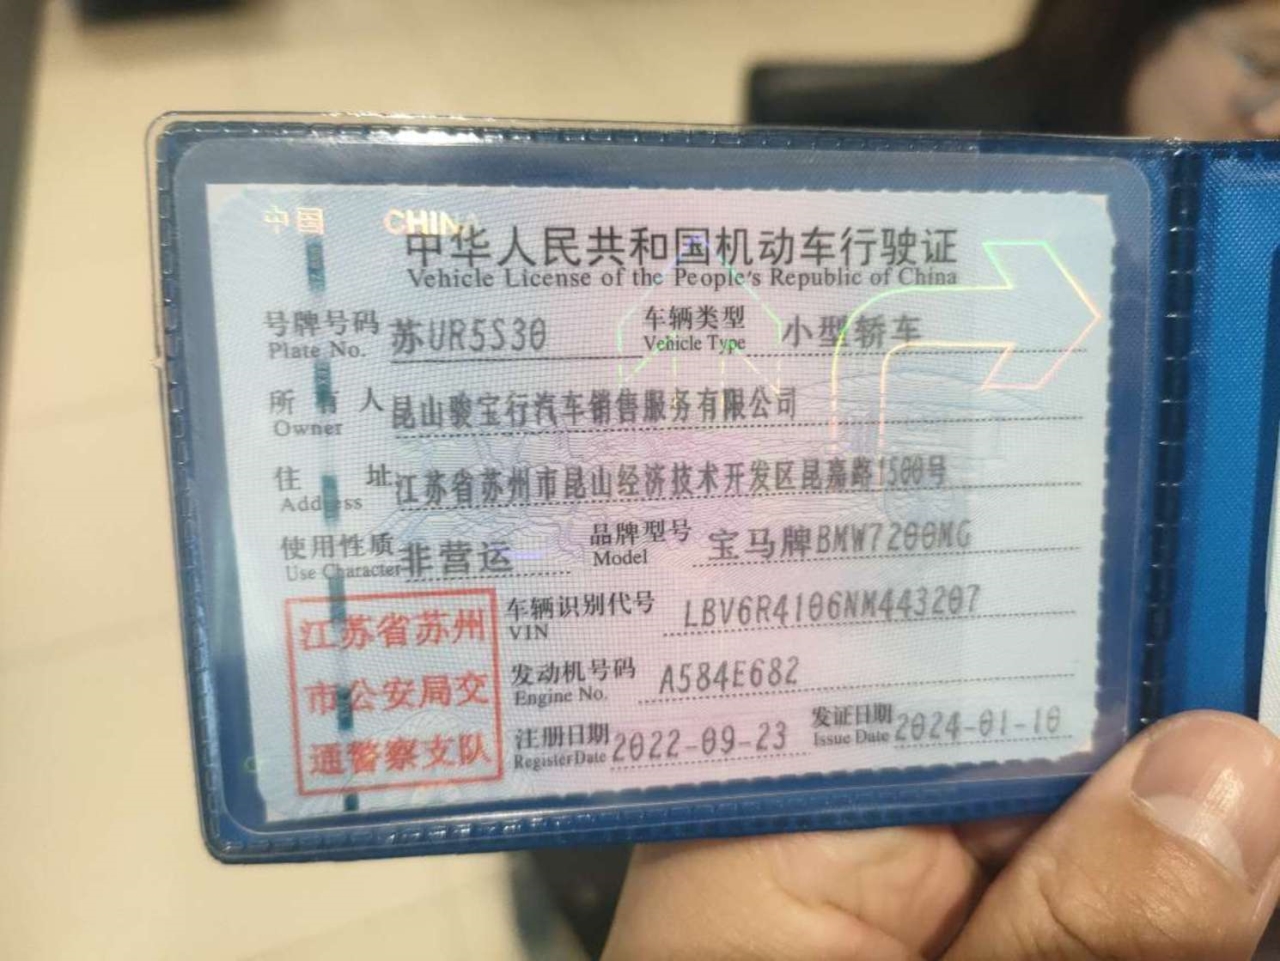 中国 CHINA
中华人民共和国机动车行驶证
Vehicle License of the People's Republic of China
号牌号码 苏UR5S30 车辆类型 小型轿车
Plate No. Vehicle Type
所有人 昆山骏宝行汽车销售服务有限公司
Owner
住址 江苏省苏州市昆山经济技术开发区昆嘉路1500号
Address
使用性质 非营运 品牌型号 宝马牌BMW7200MG
Use Character Model
车辆识别代号 LBV6R4106NM443207
VIN
发动机号码 A584E682
Engine No.
注册日期 2022-09-23 发证日期 2024-01-10
Register Date Issue Date
江苏省苏州
市公安局交
通警察支队